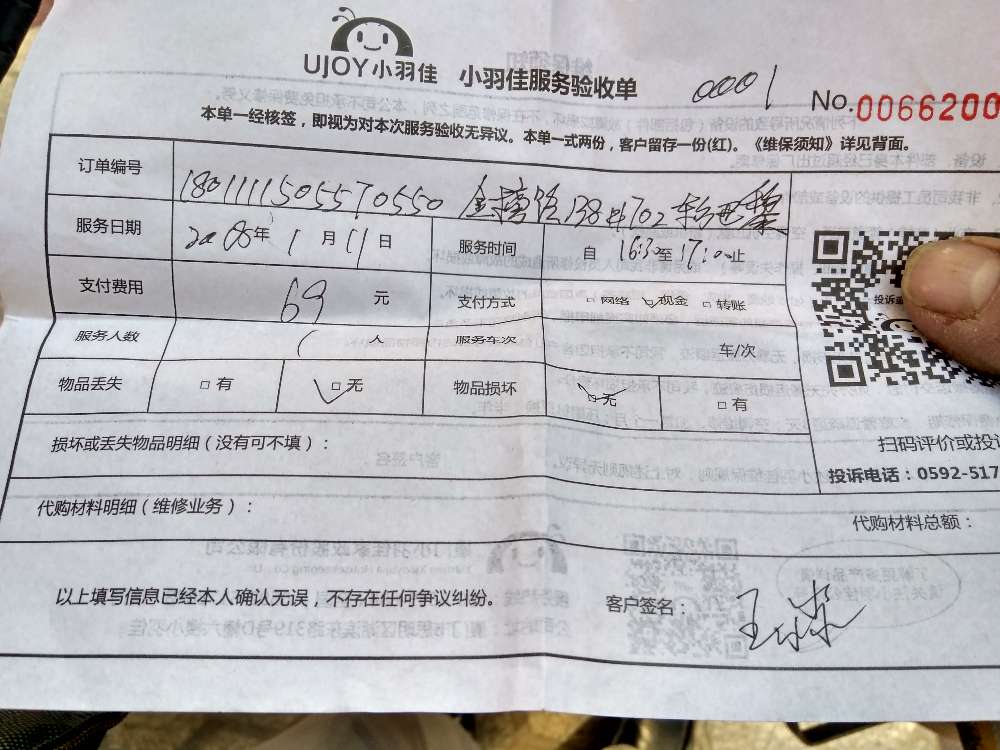 UJOY小羽佳 小羽佳服务验收单 0001 No.0066200
本单一经核签，即视为对本次服务验收无异议。本单一式两份，客户留存一份(红)。《维保须知》详见背面。
订单编号 1801111505570550 138#702
服务日期 2018年1月11日 服务时间 自16:30至17:00止
支付费用 69元 支付方式 □网络 ☑现金 □转账
服务人数 1人 服务车次 车/次
物品丢失 □有 ☑无 物品损坏 ☑无 □有
损坏或丢失物品明细（没有可不填）：
扫码评价或投诉
投诉电话：0592-517
代购材料明细（维修业务）：
代购材料总额：
以上填写信息已经本人确认无误，不存在任何争议纠纷。
客户签名：